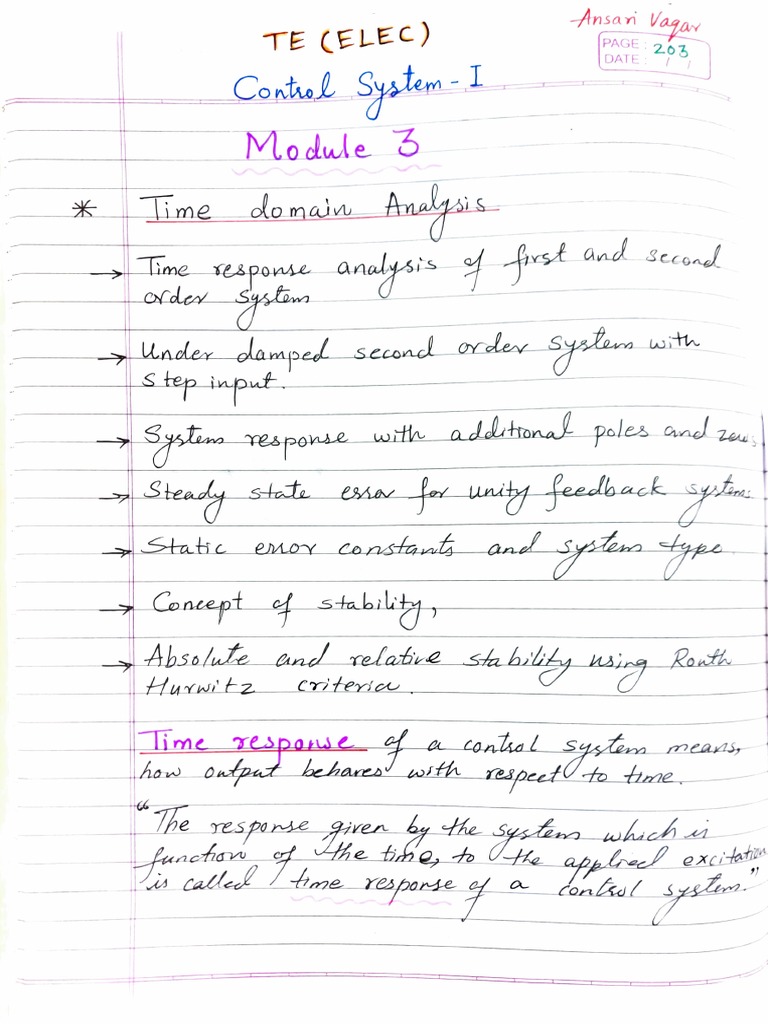 TE (ELEC)
Ansari Vaqar
PAGE: 203
DATE: / /
Control System - I
Module 3
* Time domain Analysis
→ Time response analysis of first and second
order system
→ Under damped second order system with
step input.
→ System response with additional poles and zeros
→ Steady state error for unity feedback systems
→ Static error constants and system type
→ Concept of stability,
→ Absolute and relative stability using Routh
Hurwitz criteria.
Time response of a control system means,
how output behaves with respect to time.
"The response given by the system which is
function of the time, to the applied excitation
is called time response of a control system."